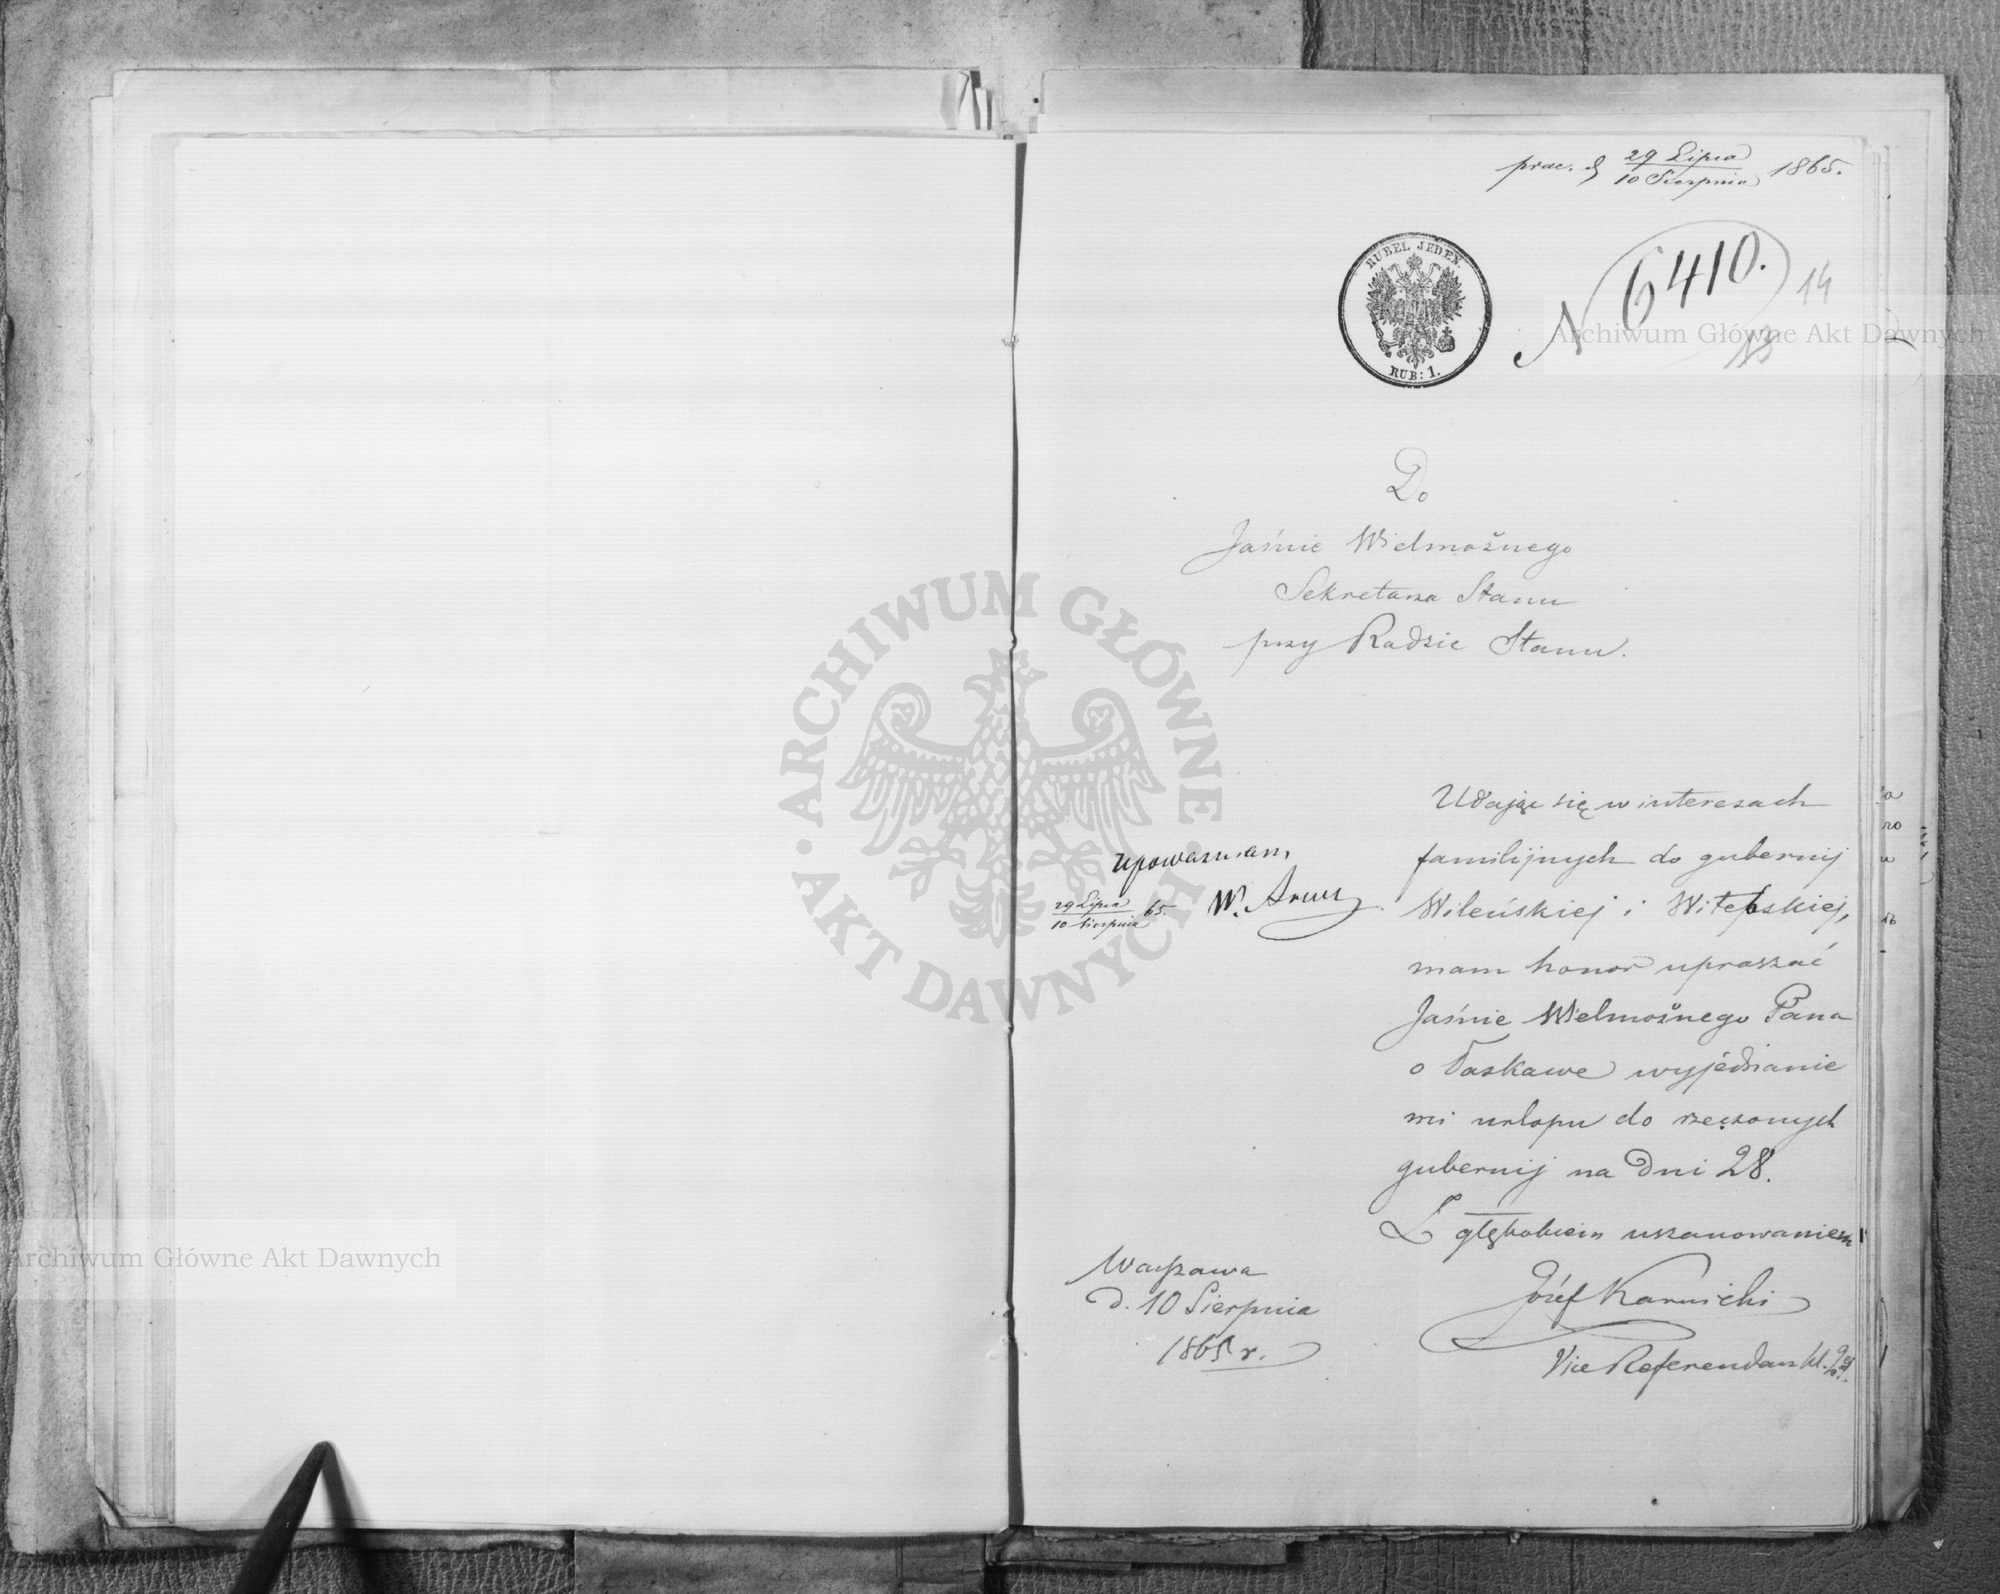 prae. d 29 Lipca / 10 Sierpnia 1865.
RUBEL JEDEN.
RUB: 1.
N 6410.
14
13
Do
Jaśnie Wielmożnego
Sekretarza Stanu
przy Radzie Stanu.
Udając się w interesach
familijnych do gubernij
Wileńskiej i Witebskiej,
mam honor upraszać
Jaśnie Wielmożnego Pana
o łaskawe wyjednanie
mi urlopu do rzeczonych
gubernij na dni 28.
Z głębokiem uszanowaniem
Józef Karnicki
Vice Referendarz
upoważniam,
29 Lipca / 10 Sierpnia 65. W.
Warszawa
d. 10 Sierpnia
1865 r.
ARCHIWUM GŁÓWNE · AKT DAWNYCH ·
Archiwum Główne Akt Dawnych
Archiwum Główne Akt Dawnych